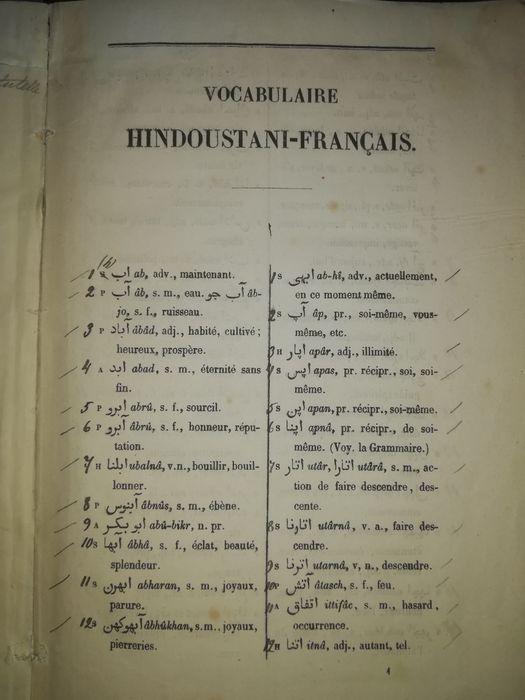 VOCABULAIRE
HINDOUSTANI-FRANÇAIS.
(h)
1 S اب ab, adv., maintenant.
2 P آب âb, s. m., eau. آب جو âb-
jo, s. f., ruisseau.
3 P آباد âbâd, adj., habité, cultivé;
heureux, prospère.
4 A ابد abad, s. m., éternité sans
fin.
5 P ابرو abrû, s. f., sourcil.
6 P آبرو âbrû, s. f., honneur, répu-
tation.
7 H ابلنا ubalnâ, v.n., bouillir, bouil-
lonner.
8 P آبنوس âbnûs, s. m., ébène.
9 A ابو بكر abû-bikr, n. pr.
10 S آبها âbhâ, s. f., éclat, beauté,
splendeur.
11 S ابهرن abharan, s. m., joyaux,
parure.
12 S آبهوكهن âbhûkhan, s.m., joyaux,
pierreries.
1 S ابهی ab-hî, adv., actuellement,
en ce moment même.
2 S آپ âp, pr., soi-même, vous-
même, etc.
3 H اپار apâr, adj., illimité.
4 S اپس apas, pr. récipr., soi, soi-
même.
5 S اپن apan, pr. récipr., soi-même.
6 S اپنا apnâ, pr. récipr., de soi-
même. (Voy. la Grammaire.)
7 S اتار utâr, اتارا utârâ, s. m., ac-
tion de faire descendre, des-
cente.
8 S اتارنا utârnâ, v. a., faire des-
cendre.
9 S اترنا utarnâ, v, n., descendre.
10 P آتش âtasch, s. f., feu.
11 A اتفاق ittifâc, s. m., hasard,
occurrence.
12 H اتنا itnâ, adj., autant, tel.
1